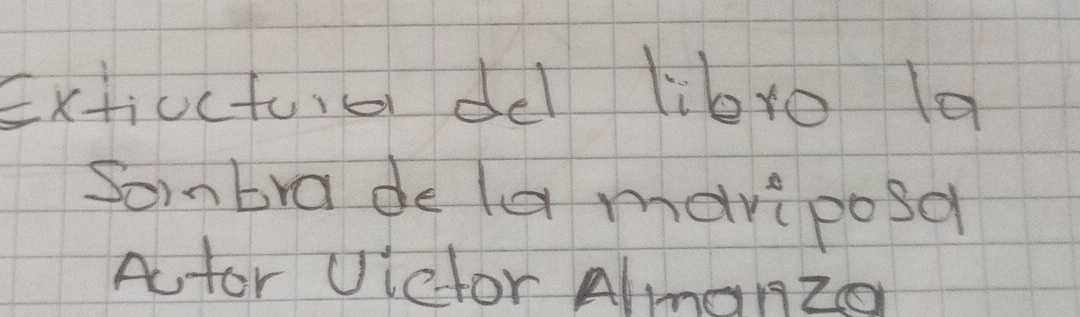 Extiuctura del libro la
Sombra de la mariposa
Autor Victor Almanza